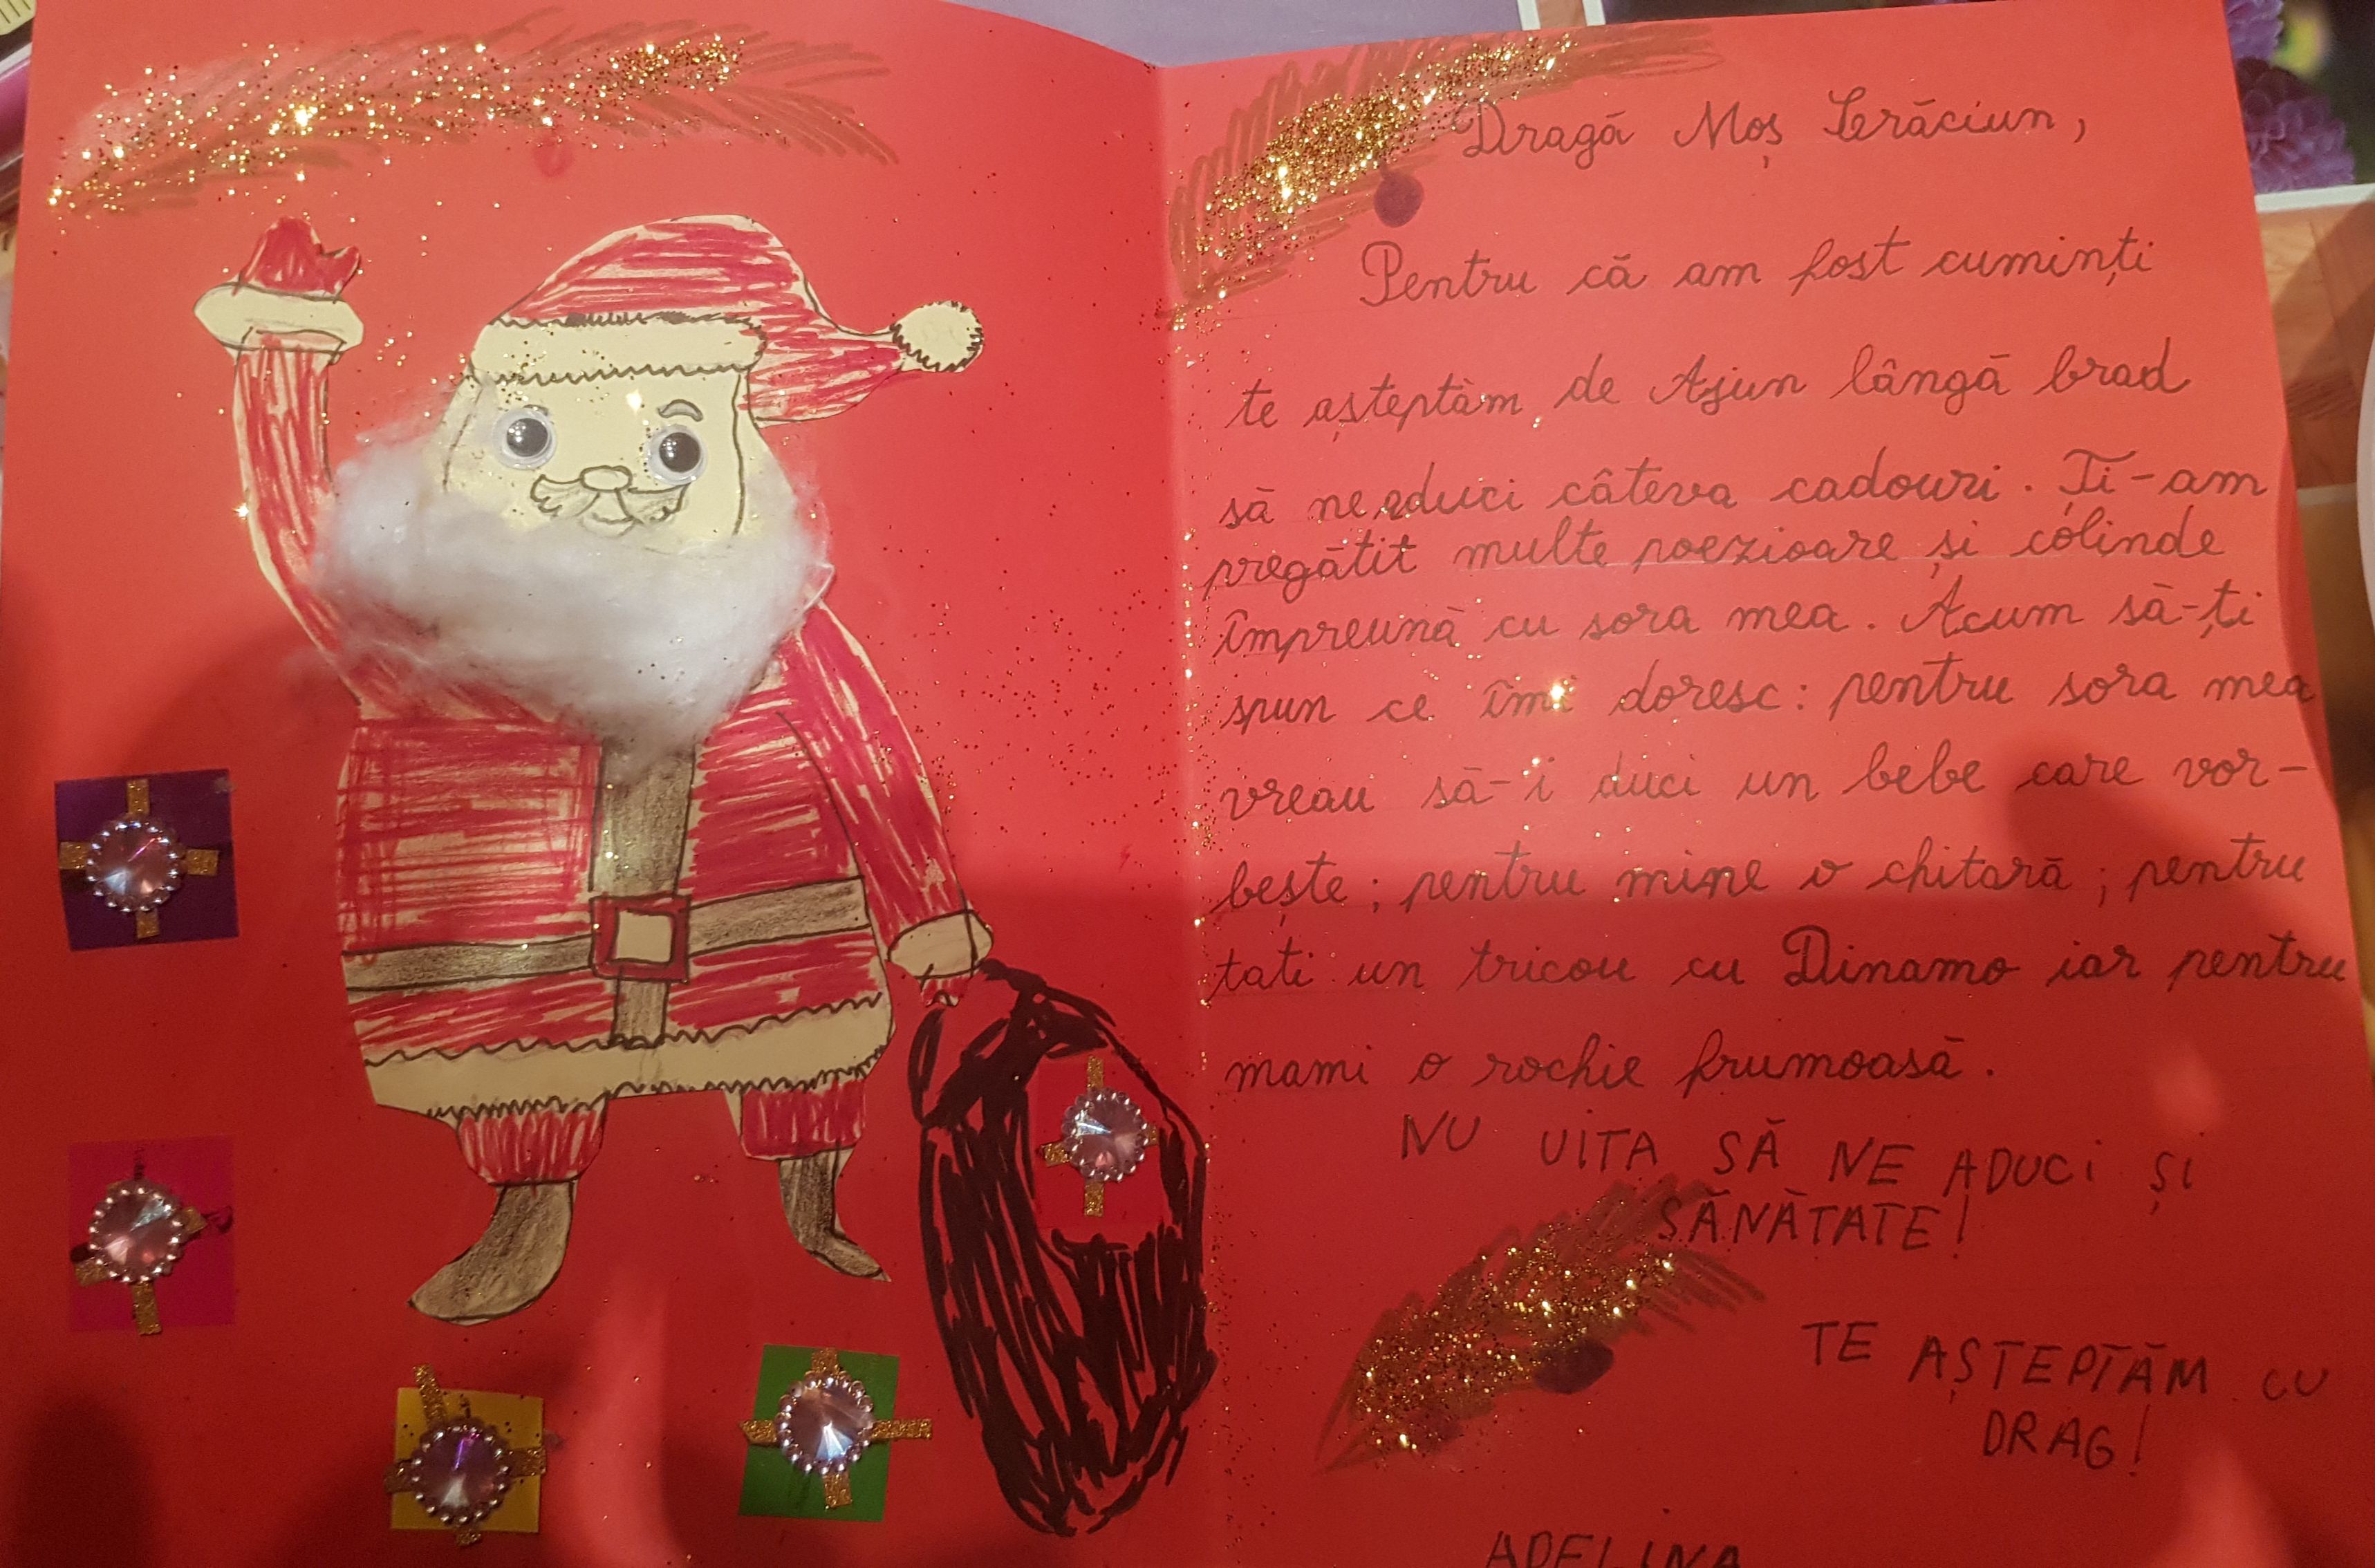 Dragă Moș Crăciun,
Pentru că am fost cuminți
te așteptăm de Ajun lângă brad
să ne aduci câteva cadouri. Ți-am
pregătit multe poezioare și colinde
împreună cu sora mea. Acum să-ți
spun ce îmi doresc: pentru sora mea
vreau să-i duci un bebe care vor-
bește; pentru mine o chitară; pentru
tati un tricou cu Dinamo iar pentru
mami o rochie frumoasă.
NU UITA SĂ NE ADUCI ȘI
SĂNĂTATE!
TE AȘTEPTĂM CU
DRAG!
ADELINA